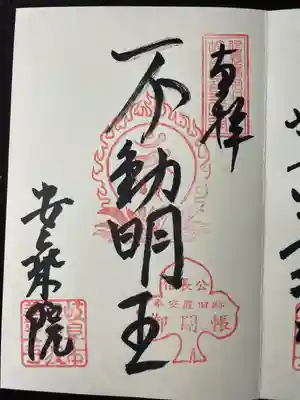 奉拝
不動明王
信長公
奉安置旧跡
御開帳
安楽院
岐阜市